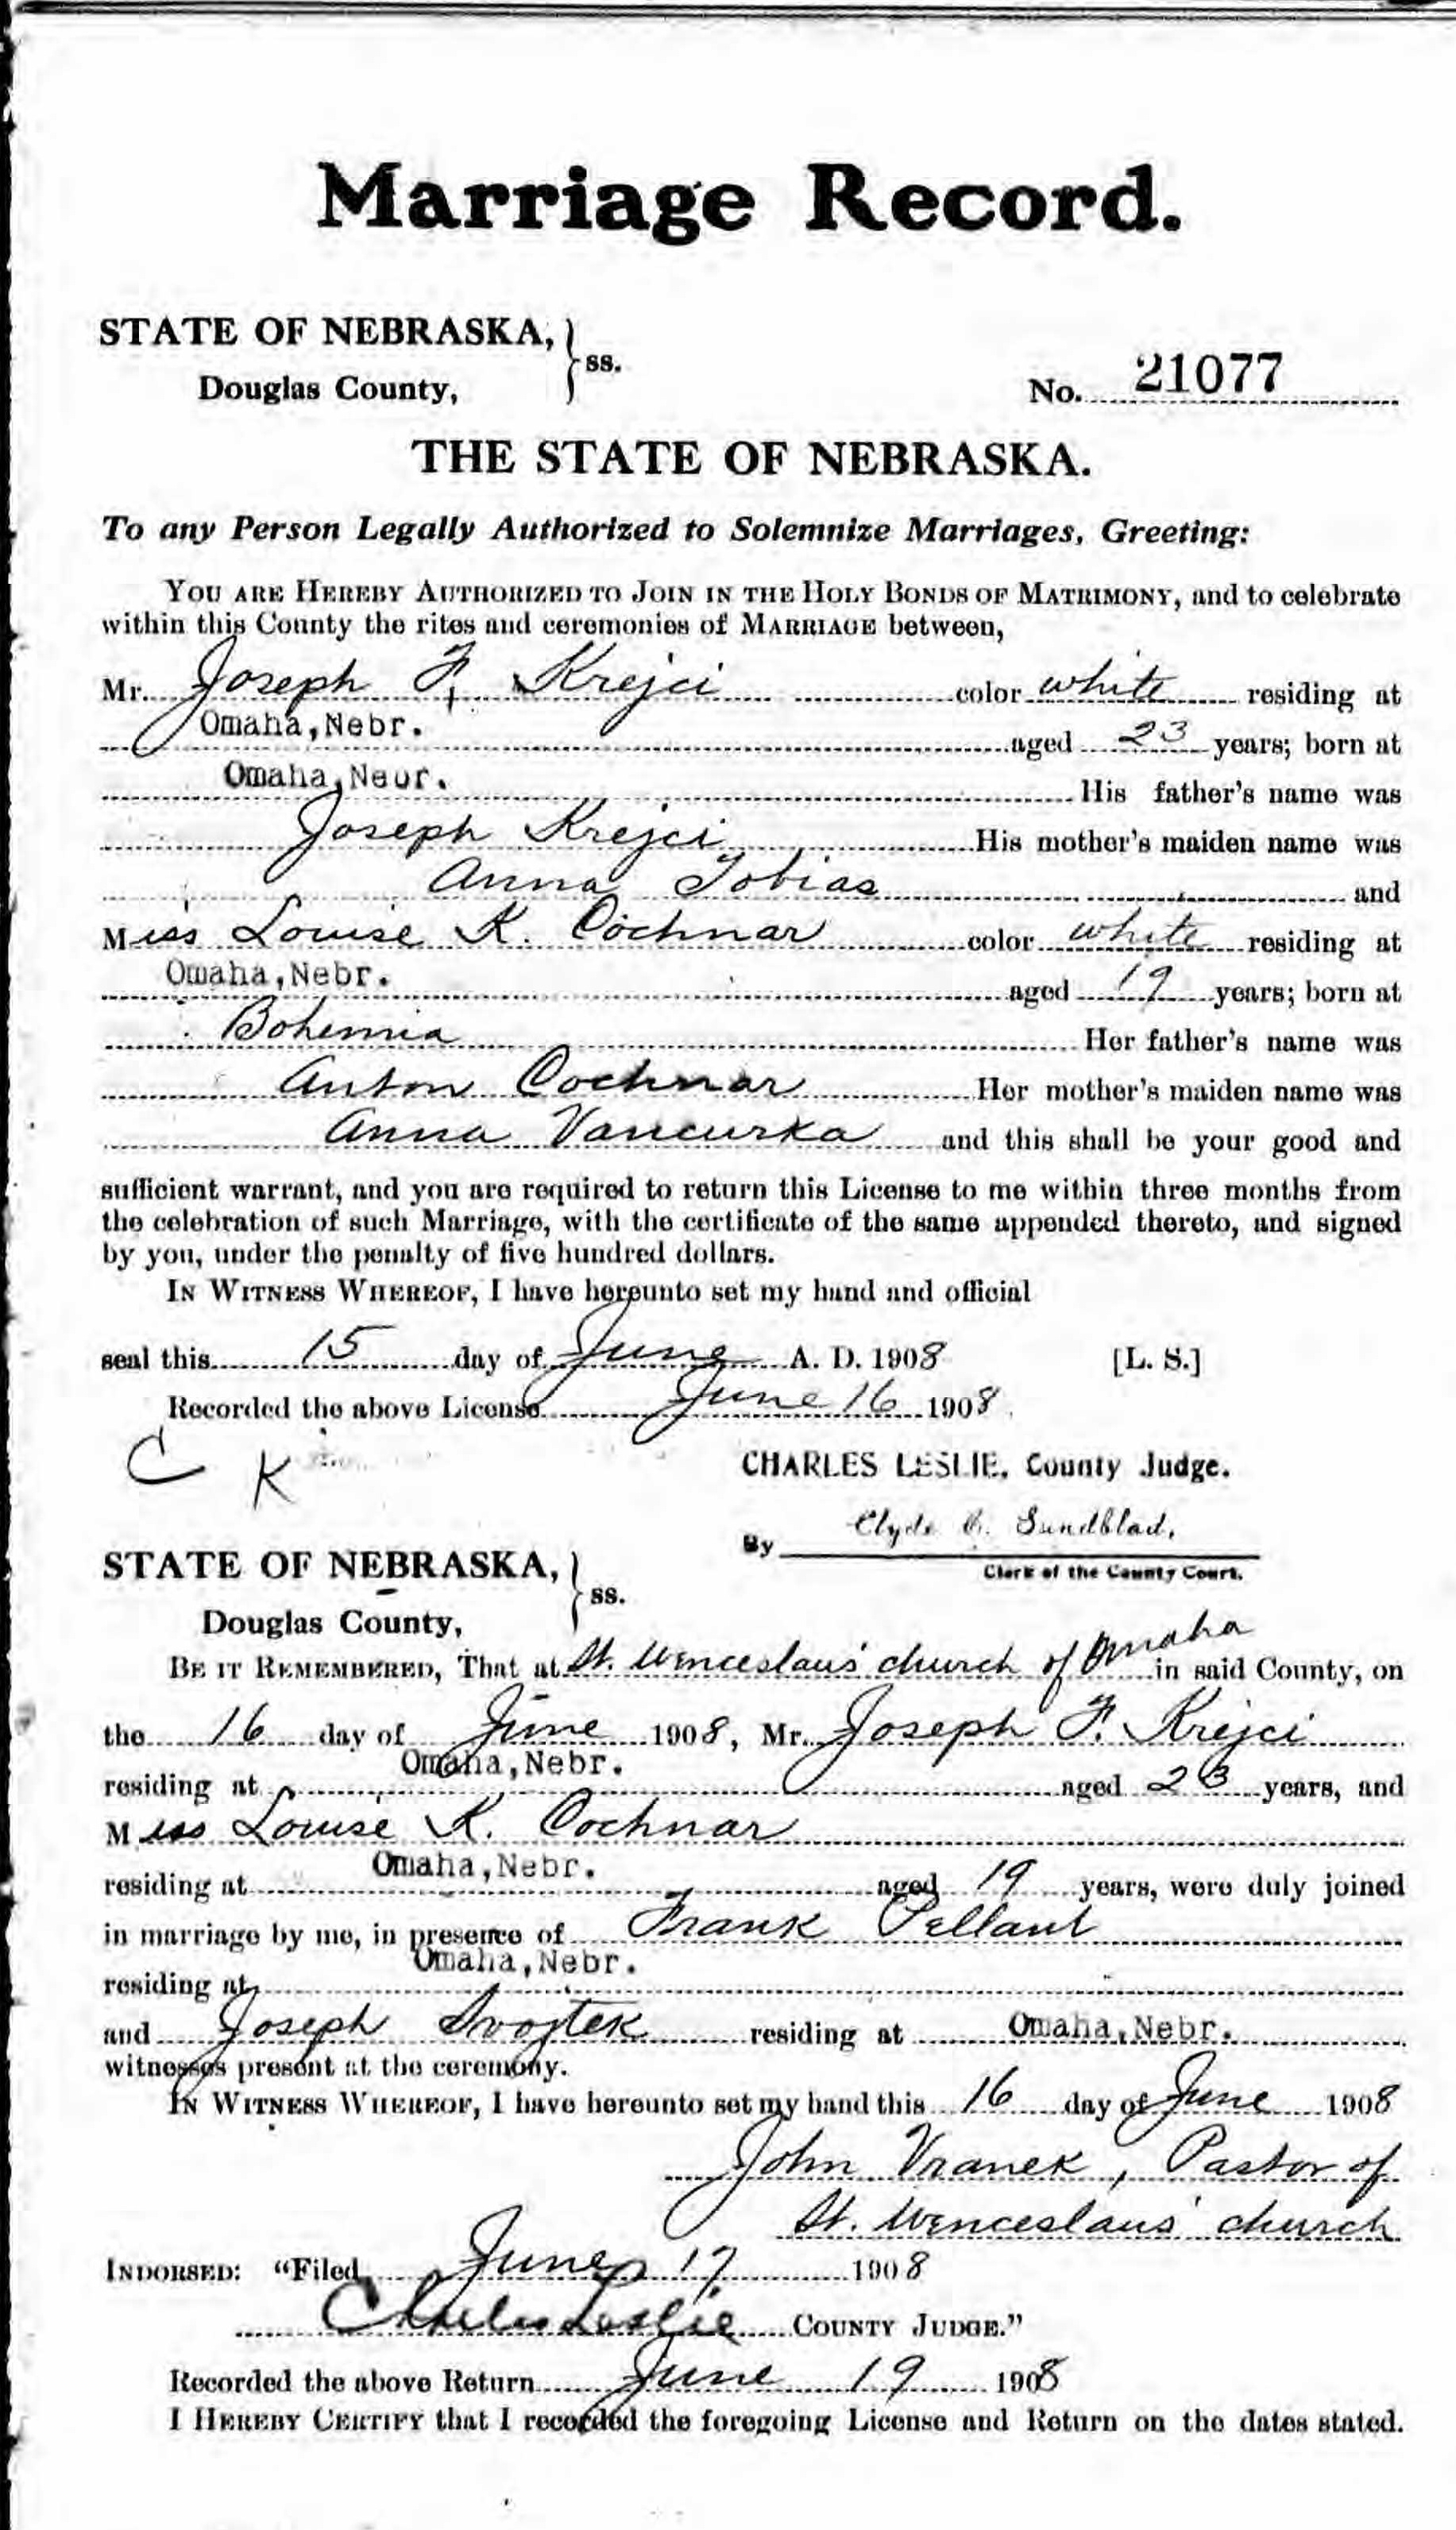 Marriage Record.
STATE OF NEBRASKA, } ss.
Douglas County,
No. 21077
THE STATE OF NEBRASKA.
To any Person Legally Authorized to Solemnize Marriages, Greeting:
YOU ARE HEREBY AUTHORIZED TO JOIN IN THE HOLY BONDS OF MATRIMONY, and to celebrate
within this County the rites and ceremonies of MARRIAGE between,
Mr. Joseph F. Krejci color white residing at
Omaha, Nebr. aged 23 years; born at
Omaha, Nebr. His father's name was
Joseph Krejci His mother's maiden name was
Anna Tobias and
Miss Louise K. Cochnar color white residing at
Omaha, Nebr. aged 19 years; born at
Bohemia Her father's name was
Anton Cochnar Her mother's maiden name was
Anna Vancurka and this shall be your good and
sufficient warrant, and you are required to return this License to me within three months from
the celebration of such Marriage, with the certificate of the same appended thereto, and signed
by you, under the penalty of five hundred dollars.
IN WITNESS WHEREOF, I have hereunto set my hand and official
seal this 15 day of June A. D. 1908 [L. S.]
Recorded the above License June 16 1908
C K
CHARLES LESLIE, County Judge.
By Clyde C. Sundblad,
Clerk of the County Court.
STATE OF NEBRASKA, } ss.
Douglas County,
BE IT REMEMBERED, That at St. Wenceslaus' church of Omaha in said County, on
the 16 day of June 1908, Mr. Joseph F. Krejci
residing at Omaha, Nebr. aged 23 years, and
Miss Louise K. Cochnar
residing at Omaha, Nebr. aged 19 years, were duly joined
in marriage by me, in presence of Frank Pellant
residing at Omaha, Nebr.
and Joseph Svojtek residing at Omaha, Nebr.
witnesses present at the ceremony.
IN WITNESS WHEREOF, I have hereunto set my hand this 16 day of June 1908
John Vranek, Pastor of
St. Wenceslaus' church
INDORSED: "Filed June 17 1908
Charles Leslie COUNTY JUDGE."
Recorded the above Return June 19 1908
I HEREBY CERTIFY that I recorded the foregoing License and Return on the dates stated.